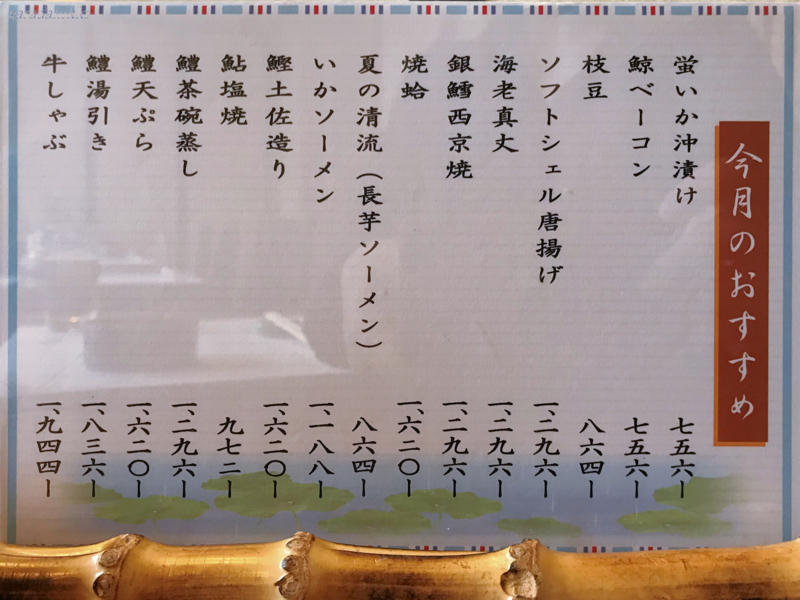 今月のおすすめ
蛍いか沖漬け 七五六ー
鯨ベーコン 七五六ー
枝豆 八六四ー
ソフトシェル唐揚げ 一、二九六ー
海老真丈 一、二九六ー
銀鱈西京焼 一、二九六ー
焼蛤 一、六二〇ー
夏の清流（長芋ソーメン） 八六四ー
いかソーメン 一、一八八ー
鰹土佐造り 一、六二〇ー
鮎塩焼 九七二ー
鱧茶碗蒸し 一、二九六ー
鱧天ぷら 一、六二〇ー
鱧湯引き 一、八三六ー
牛しゃぶ 一、九四四ー